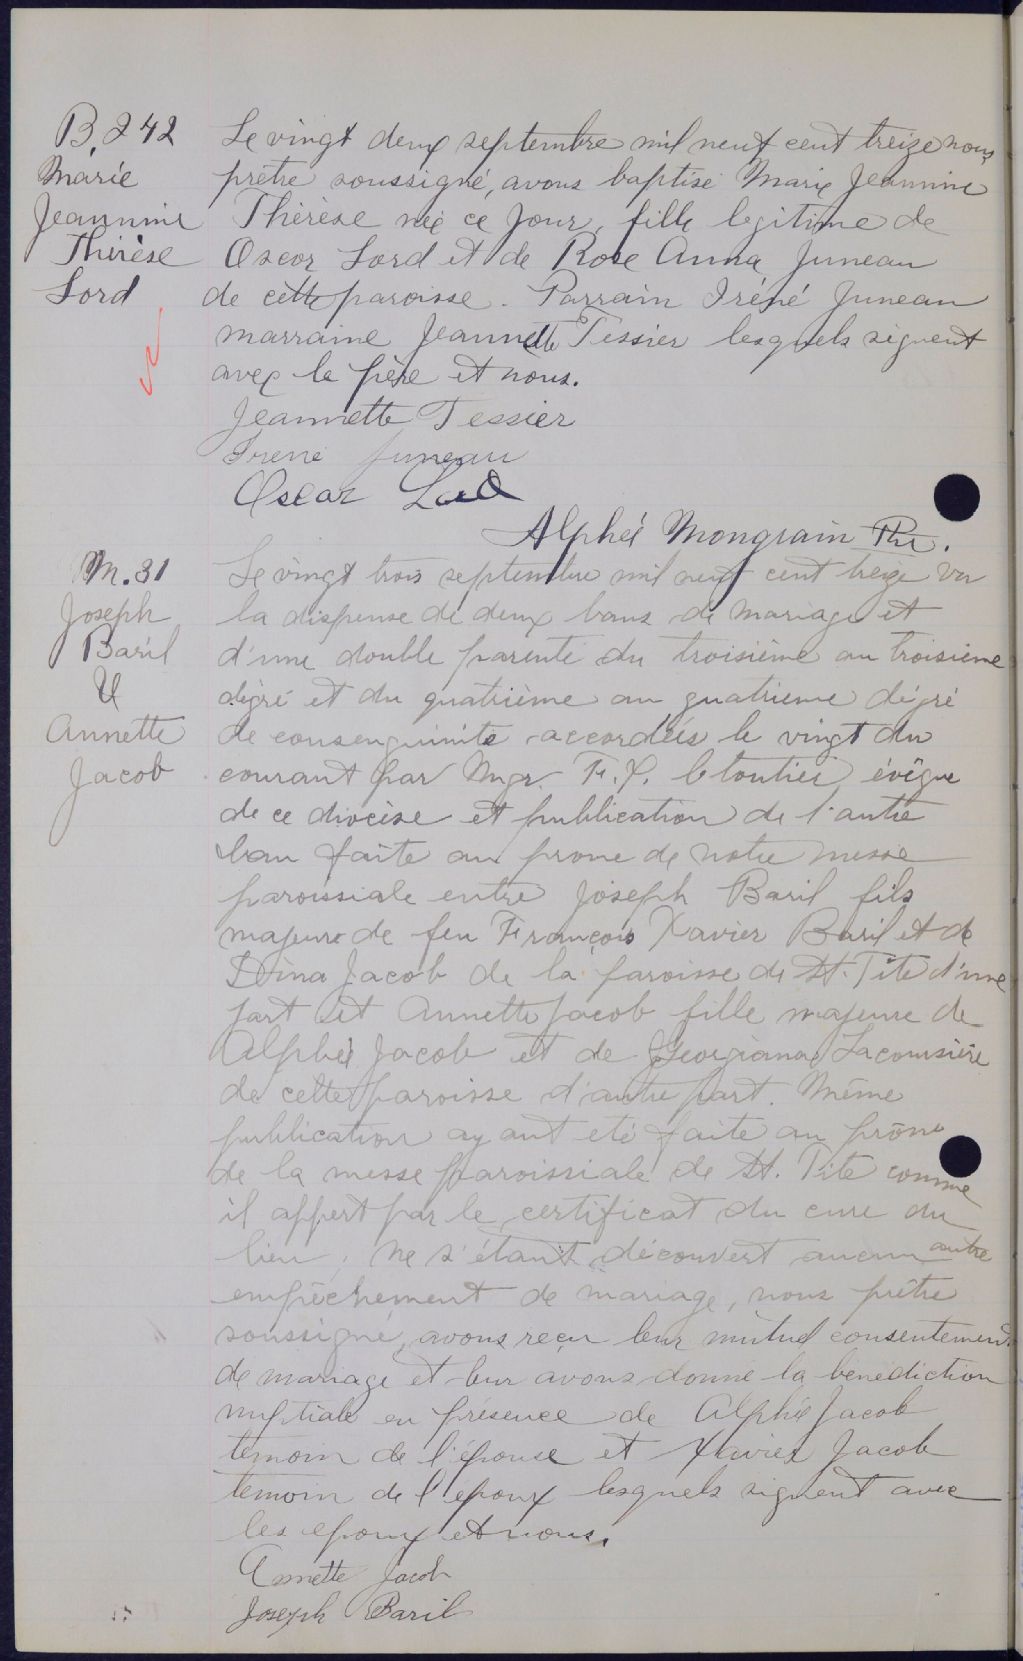 B. 242
Marie
Jeannine
Thérèse
Lord
Le vingt deux septembre mil neuf cent treize nous
prêtre soussigné, avons baptisé Marie Jeannine
Thérèse née ce jour, fille legitime de
Oscar Lord et de Rose Anna Juneau
de cette paroisse. Parrain Iréné Juneau
marraine Jeannette Tessier lesquels signent
avec le père et nous.
Jeannette Tessier
Irene Juneau
Oscar Lord
Alphée Mongrain Ptre.
M. 31
Joseph
Baril
&
Annette
Jacob
Le vingt trois septembre mil neuf cent treize vu
la dispense de deux bans de mariage et
d'une double parenté du troisième au troisième
dégré et du quatrième au quatrieme dégré
de consenguinité accordées le vingt du
courant par Mgr. F. X. Cloutier, évêque
de ce diocèse et publication de l'autre
ban faite au prone de notre messe
paroissiale entre Joseph Baril fils
majeur de feu François Xavier Baril et de
Dina Jacob de la paroisse de St. Tite d'une
part et Annette Jacob fille majeure de
Alphée Jacob et de Georgianna Lacoursière
de cette paroisse d'autre part. Même
publication ayant eté faite au prône
de la messe paroissiale de St. Tite comme
il appert par le certificat du cure du
lieu; ne s'étant découvert aucun autre
empêchement de mariage, nous prêtre
soussigné, avons reçu leur mutuel consentement
de mariage et leur avons donné la bénédiction
nuptiale en présence de Alphée Jacob
témoin de l'épouse et Xavier Jacob
temoin de l'epoux lesquels signent avec
les epoux et nous.
Annette Jacob
Joseph Baril